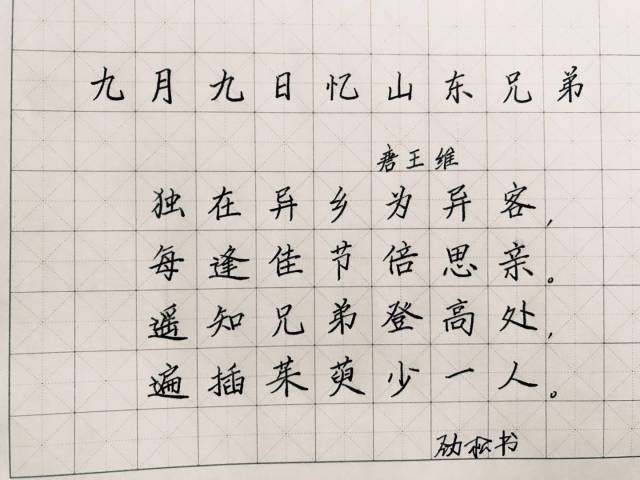 九月九日忆山东兄弟
唐王维
独在异乡为异客,
每逢佳节倍思亲。
遥知兄弟登高处,
遍插茱萸少一人。
劲松书